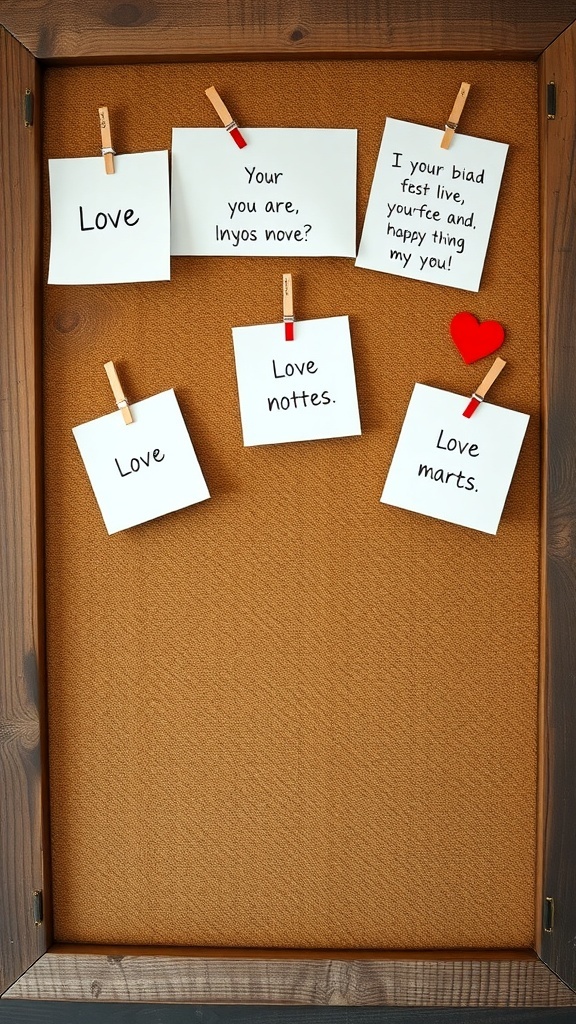 Love
Your
you are,
Inyos nove?
I your biad
fest live,
your fce and,
happy thing
my you!
Love
nottes.
Love
Love
marts.